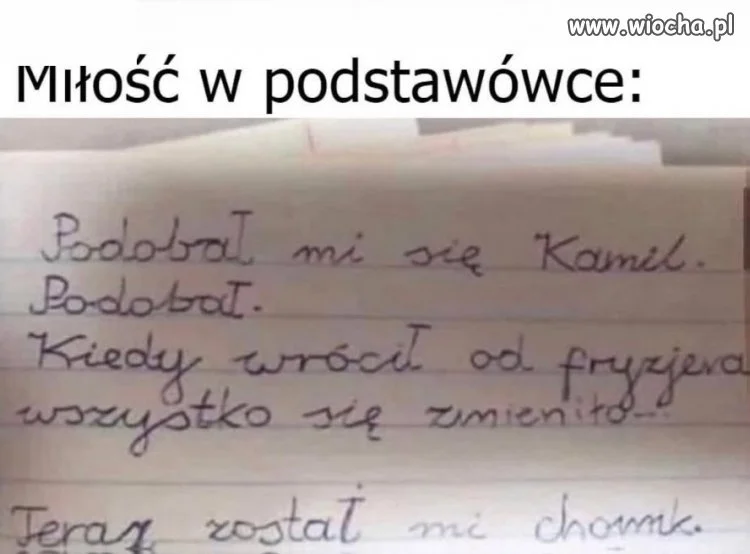 www.wiocha.pl
Miłość w podstawówce:
Podobał mi się Kamil.
Podobał.
Kiedy wrócił od fryzjera
wszystko się zmieniło...
Teraz został mi chomik.